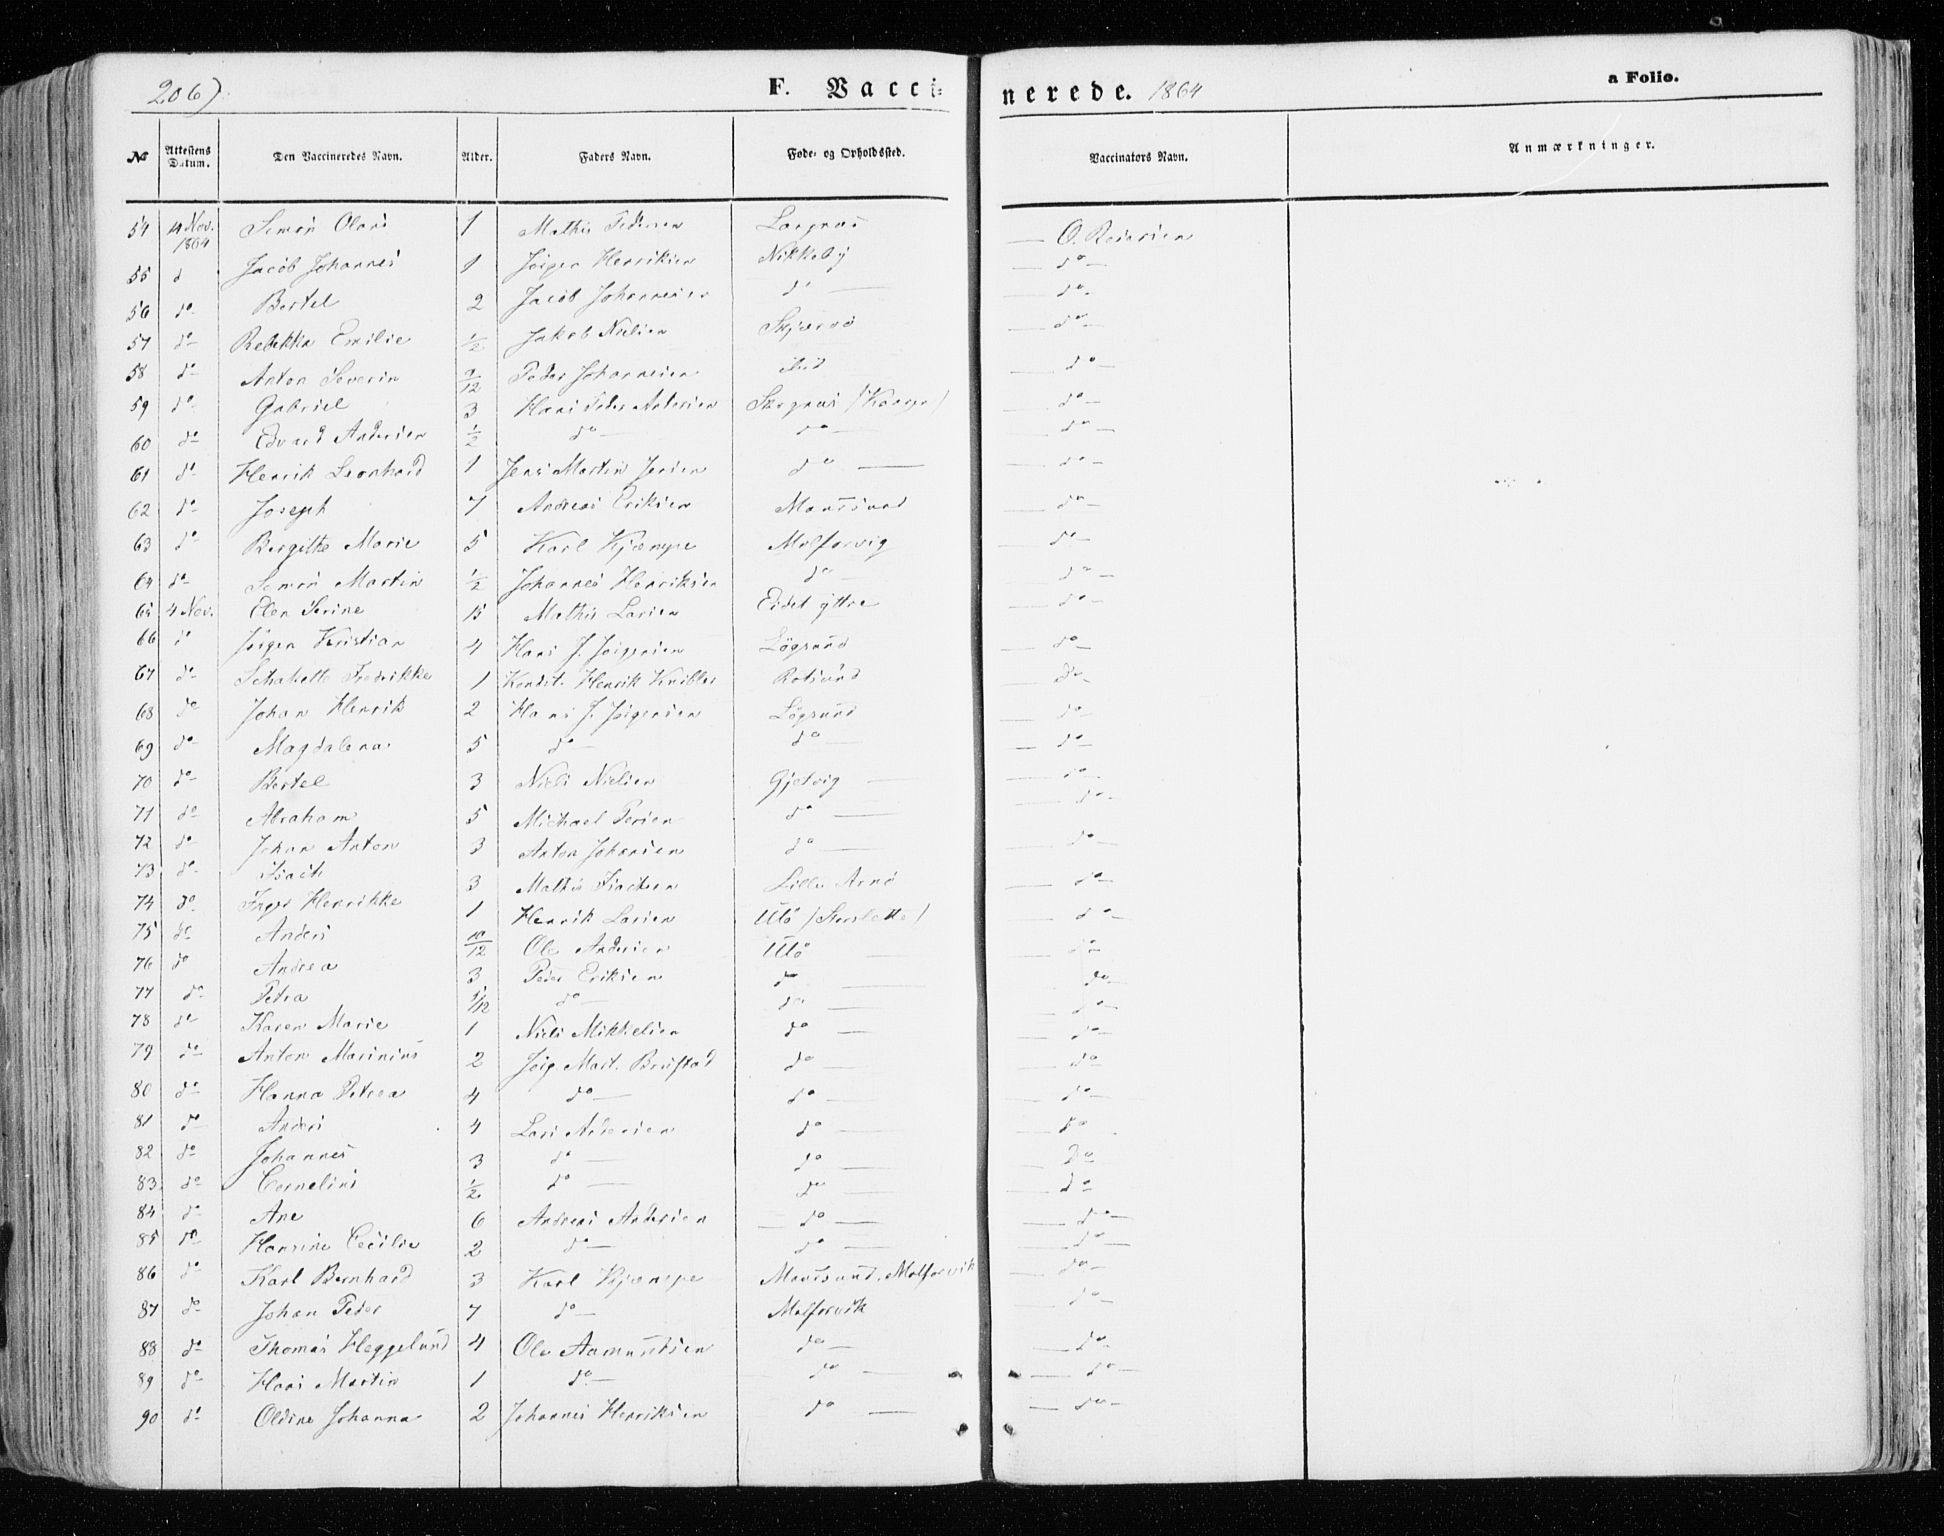 206)
F. Vaccinerede. 1864
a Folio.
№ Attestens Datum. Den Vaccineredes Navn. Alder. Faders Navn. Føde- og Opholdssted. Vaccinators Navn. Anmærkninger.
54 14 Nov. 1864 Simon Olaus 1 Mathis Pedersen — O.
55 d Jacob Johannes 1 Jørgen Henriksen Nikkeby — do —
56 do Bertel 2 Jacob Johannesen do — — do —
57 do Rebekka Emilie 1/2 Jakob Nielsen Skjærvø — do —
58 do Anton Severin 9/12 Peder Johannesen ibid — do —
59 do Gabriel 3 Hans Peder Andersen — do —
60 do Edvard Andersen 1/2 do — do — — do —
61 do Henrik Leonhard 1 Jens Martin Jensen do — — do —
62 do Joseph 7 Andreas Eriksen Maursund — do —
63 do Bergithe Marie 5 Karl Kjæmpe Molforvig — do —
64 do Simon Martin 1/2 Johannes Henriksen do — — do —
65 4 Nov. Elen Serine 15 Mathis Larsen Eidet yttre — do —
66 do Jørgen Kristian 4 Hans J. Jørgensen Løgsund — do —
67 do Fredrikke 1 Henrik Rotsund — do —
68 do Johan Henrik 2 Hans J. Jørgensen Løgsund — do —
69 do Magdalena 5 do — do — — do —
70 do Bertel 3 Niels Nielsen Gjetvig — — do —
71 do Abraham 5 Michael Persen do — — do —
72 do Johan Anton 3 Anton Johansen do — — do —
73 do Isach 3 Mathis Isachsen Lille Arnø — do —
74 do Inger Henrikke 1 Henrik Larsen Ulø (Storslette) — do —
75 do Anders 10/12 Ole Andersen Ulø — do —
76 do Andrea 3 Peder Eriksen do — — do —
77 do Petra 1/12 do — do — — do —
78 do Karen Marie 1 Niels Mikkelsen do — — do —
79 do Anton Marinius 2 Jørg. Mart. Brustad do — — do —
80 do Hanna Petrea 4 do — do — — do —
81 do Anders 4 Lars Andersen do — — do
82 do Johannes 3 do — do — — do
83 do Cornelius 1/2 do — do — — do
84 do Ane 6 Andreas Andersen — do — — do —
85 do Hansine Cecilie 2 do — do — — do —
86 do Karl Bernhard 3 Karl Kjæmpe Maursund, Molforvik — do —
87 do Johan Peder 7 do — Molforvik — do —
88 do Thomas Heggelund 4 Ole Aamundsen do — — do —
89 do Hans Martin 1 do — do — — do —
90 do Oldine Johanna 2 Johannes Henriksen do — — do —